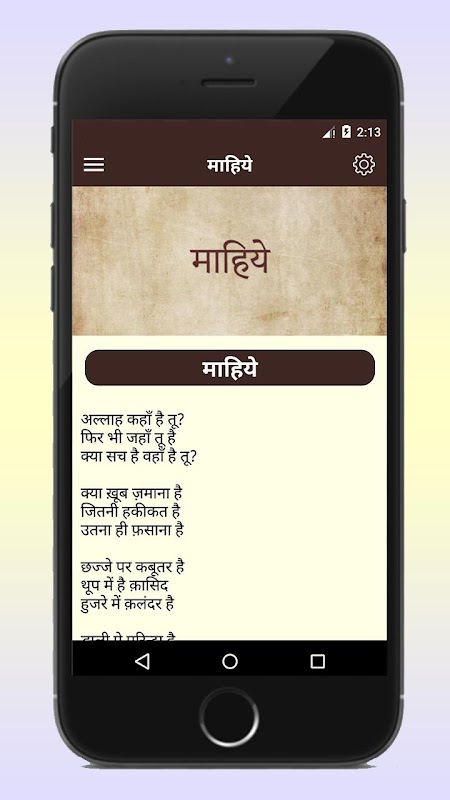 2:13
माहिये
माहिये
माहिये
अल्लाह कहाँ है तू?
फिर भी जहाँ तू है
क्या सच है वहाँ है तू?
क्या ख़ूब ज़माना है
जितनी हकीकत है
उतना ही फ़साना है
छज्जे पर कबूतर है
थूप में है क़ासिद
हुजरे में क़लंदर है